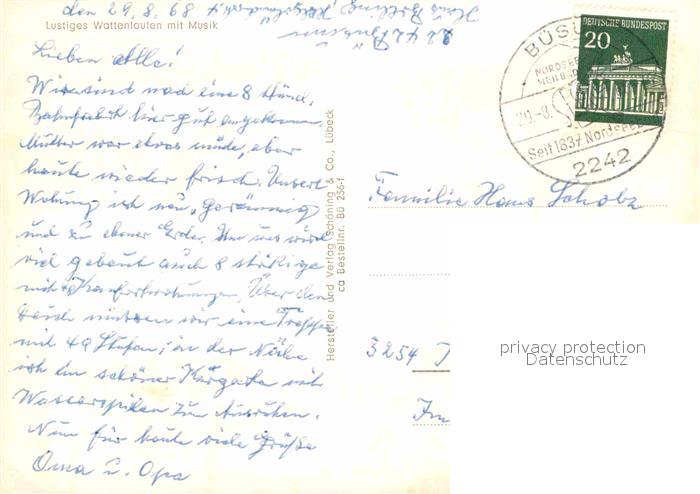 den 29.8.68
Lustiges Wattenlaufen mit Musik
Lieben Alle!
Wir sind nach eine 8 stünd.
Bahnfahrt hier gut angekommen.
Mutter war etwas müde, aber
heute wieder frisch. Unsere
Wohnung ist neu, geräumig
und zu ebener Erde. Um uns wird
viel gebaut auch 8 stökige
mit Über den
Deich müssen wir eine Treppe
mit 49 Stufen; in der Nähe
ist ein schöner Kurgarten mit
Wasserspielen zum Ausruhen.
Nun für heute viele Grüße
Oma u. Opa
Hersteller und Verlag Schöning & Co., Lübeck
ca Bestellnr. BÜ 236-1
2242 Büsum
DEUTSCHE BUNDESPOST
20
BÜSU
NORDSEE
HEILBAD
29.-8.
Seit 1837 Nordseeb
2242
Familie Hans Scholz
3254
Im
privacy protection
Datenschutz